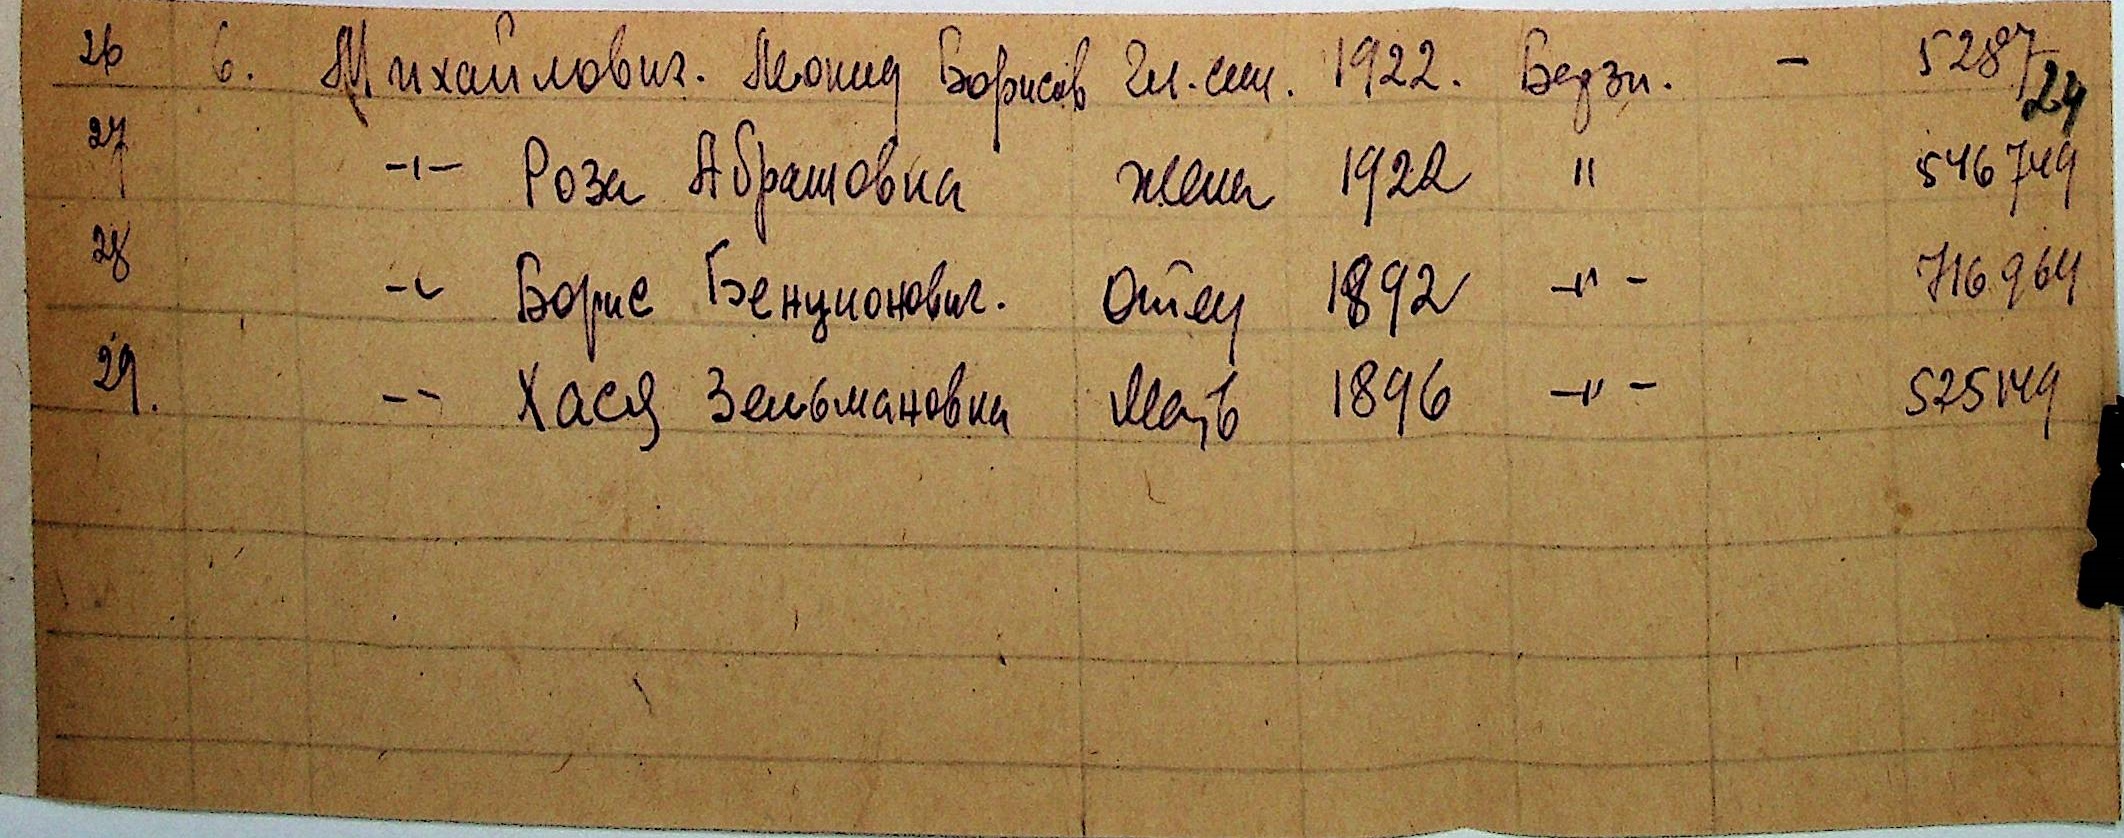 26 6. Михайлович. Леонид Борисов Гл. сем. 1922. Берзн. - 528724
27 -"- Роза Абрамовна жена 1922 " 546749
28 -"- Борис Бенционович. Отец 1892 -"- 716964
29. -- Хася Зельмановна Мать 1896 -"- 525149